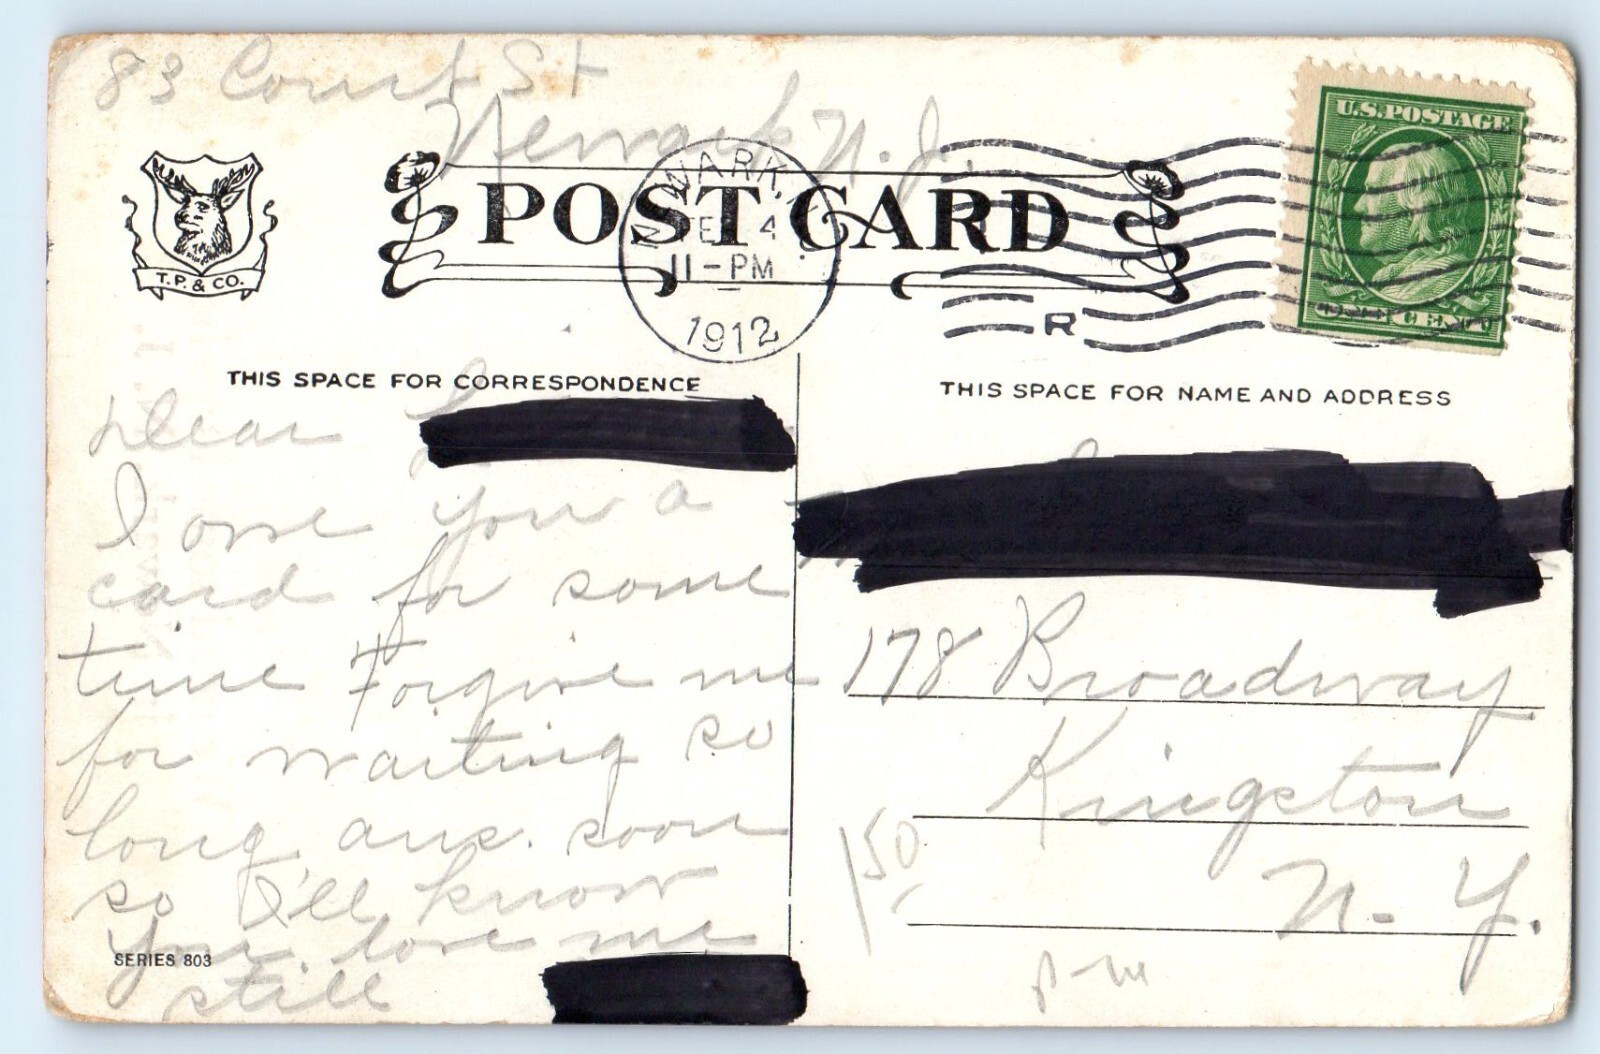 83 Court St
Newark N.J.
U.S. POSTAGE
T.P. & CO.
POST CARD
NEWARK, N.J.
FEB 4
11-PM
1912
R
THIS SPACE FOR CORRESPONDENCE
THIS SPACE FOR NAME AND ADDRESS
Dear
I owe you a
card for some
time Forgive me
for waiting so
long. ans. soon
so I'll know
you love me
still
SERIES 803
178 Broadway
Kingston
N-Y.
150